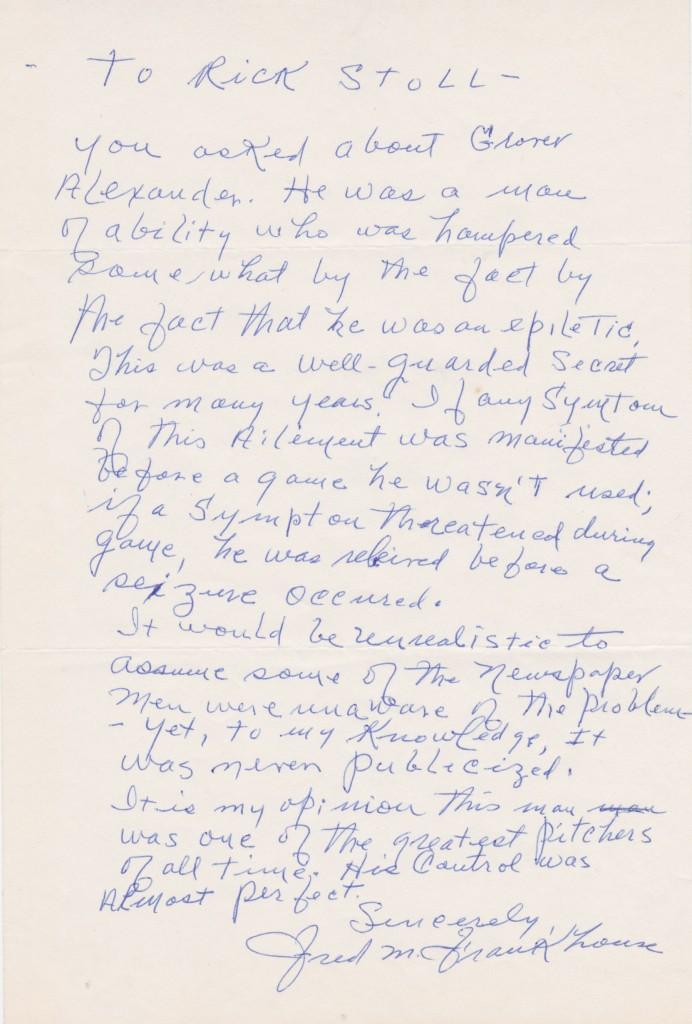 - To Rick Stoll -
You asked about Grover
Alexander. He was a man
of ability who was hampered
somewhat by the fact by
the fact that he was an epiletic.
This was a well-guarded secret
for many years. If any symtom
of this ailement was manifested
before a game he wasn't used;
if a sympton threatened during
game, he was relieved before a
seizure occured.
It would be unrealistic to
assume some of the newspaper
men were unaware of the problem
- yet, to my knowledge, it
was never publicized.
It is my opinion this man man
was one of the greatest pitchers
of all time. His control was
almost perfect.
Sincerely,
Fred M. Frankhouse